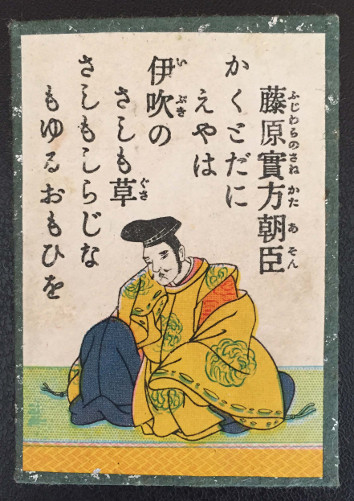 藤原實方朝臣
ふじわらのさねかたあそん
かくとだに
えやは
伊吹の
いぶき
さしも草
ぐさ
さしもしらじな
もゆるおもひを